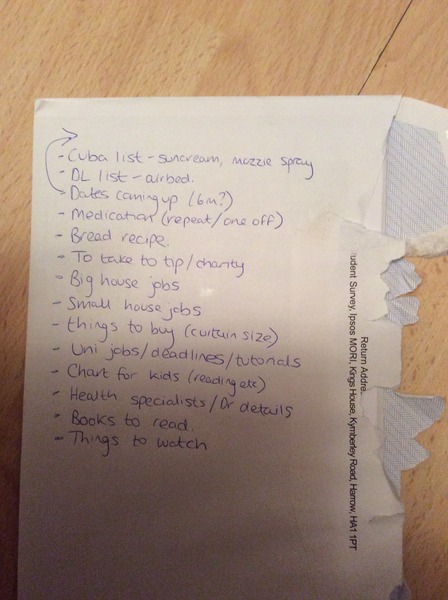 - Cuba list - suncream, mozzie spray
- DL list - airbed.
- Dates coming up (6m?)
- Medication (repeat/one off)
- Bread recipe.
- To take to tip/charity
- Big house jobs
- Small house jobs
- things to buy (curtain size)
- Uni jobs/deadlines/tutorials
- Chart for kids (reading etc)
- Health specialists/Dr details
- Books to read.
- Things to watch
Return Addre
udent Survey, Ipsos MORI, Kings House, Kymberley Road, Harrow, HA1 1PT